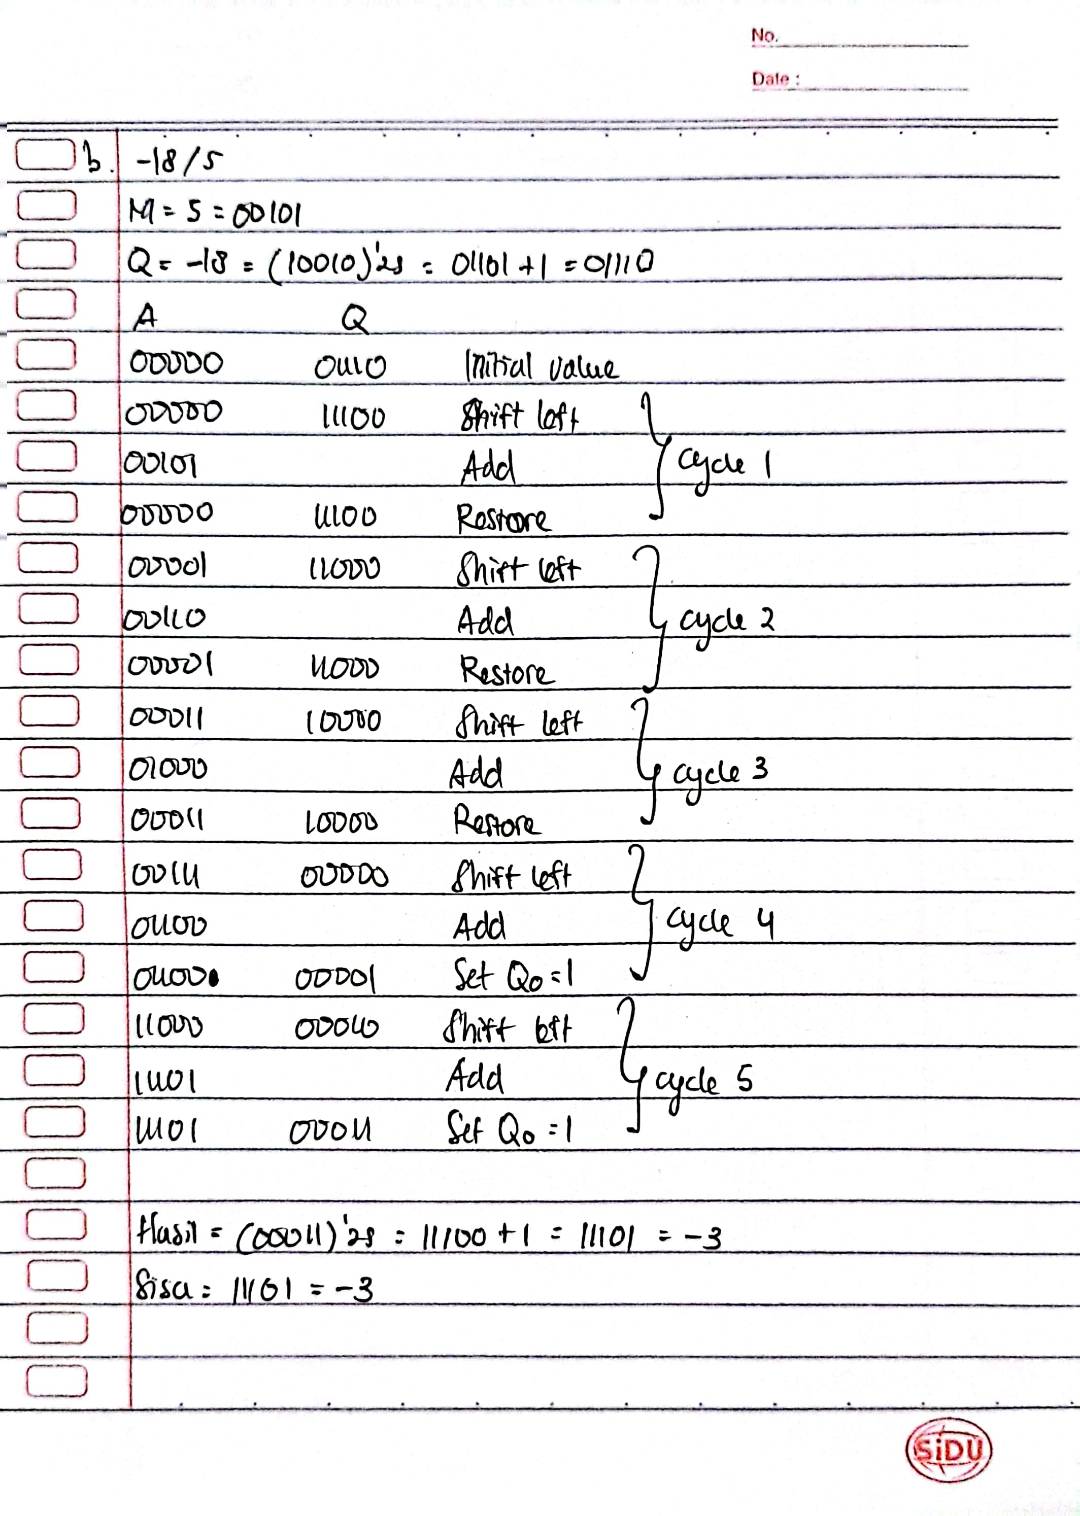 No.
Date :
b. -18/5
M = 5 = 00101
Q = -18 = (10010)'2s = 01101 + 1 = 01110
A Q
00000 01110 Initial value
00000 11100 Shift left
00101 Add cycle 1
00000 11100 Restore
00001 11000 Shift left
00110 Add cycle 2
00001 11000 Restore
00011 10000 Shift left
01000 Add cycle 3
00011 10000 Restore
00111 00000 Shift left
01100 Add cycle 4
01100 00001 Set Q0 = 1
11000 00010 Shift left
11101 Add cycle 5
11101 00011 Set Q0 = 1
Hasil = (00011)'2s = 11100 + 1 = 11101 = -3
Sisa = 11101 = -3
SiDU